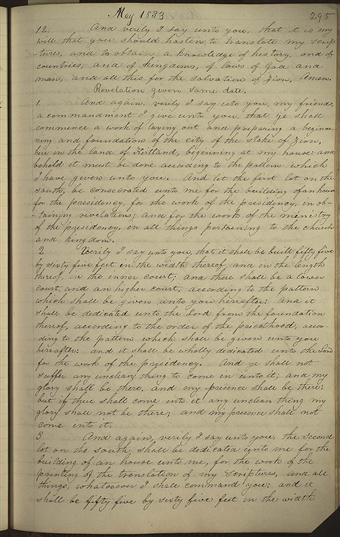 May 1833
295
12. And verily I say unto you, that it is my
will that you should hasten to translate my scrip-
tures, and to obtain a knowledge of history, and of
countries, and of kingdoms, of laws of God and
man, and all this for the salvation of Zion, Amen.
Revelation given same date.
1. And again, verily I say unto you, my friends
a commandment I give unto you that ye shall
commence a work of laying out and preparing a beginn-
ing and foundation of the city of the stake of Zion,
here in the land of Kirtland, beginning at my house: and
behold it must be done according to the pattern which
I have given unto you. And let the first lot on the
south, be consecrated unto me for the building of an house
for the presidency, for the work of the presidency, in ob-
taining revelations; and for the work of the ministry
of the presidency, in all things pertaining to the church
and kingdom.
2. Verily I say unto you, that it shall be built fifty five
by sixty five feet in the width thereof, and in the length
thereof in the inner court; and there shall be a lower
court, and an higher court, according to the pattern
which shall be given unto you hereafter: And it
shall be dedicated unto the Lord from the foundation
thereof, according to the order of the priesthood, accor-
ding to the pattern which shall be given unto you
hereafter: and it shall be wholly dedicated unto the Lord
for the work of the presidency. And ye shall not
suffer any unclean thing to come in unto it; and my
glory shall be there, and my presence shall be there;
but if there shall come into it any unclean thing my
glory shall not be there; and my presence shall not
come into it.
3. And again, verily I say unto you, the second
lot on the south, shall be dedicated unto me for the
building of an house unto me, for the work of the
printing of the translation of my scriptures, and all
things whatsoever I shall command you; and it
shall be fifty five by sixty five feet in the width